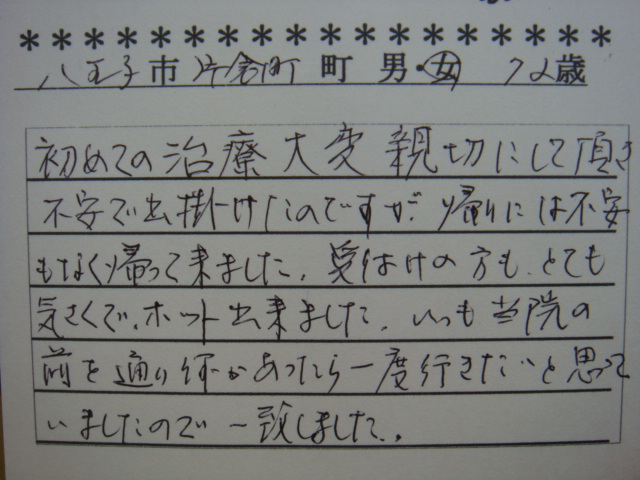 ******************
八王子市片倉町町 男・女 72歳
初めての治療大変親切にして頂き
不安で出掛けたのですが、帰りには不安
もなく帰って来ました。受付けの方も、とても
気さくで、ホット出来ました。いつも当院の
前を通り何かあったら一度行きたいと思って
いましたので一致しました。